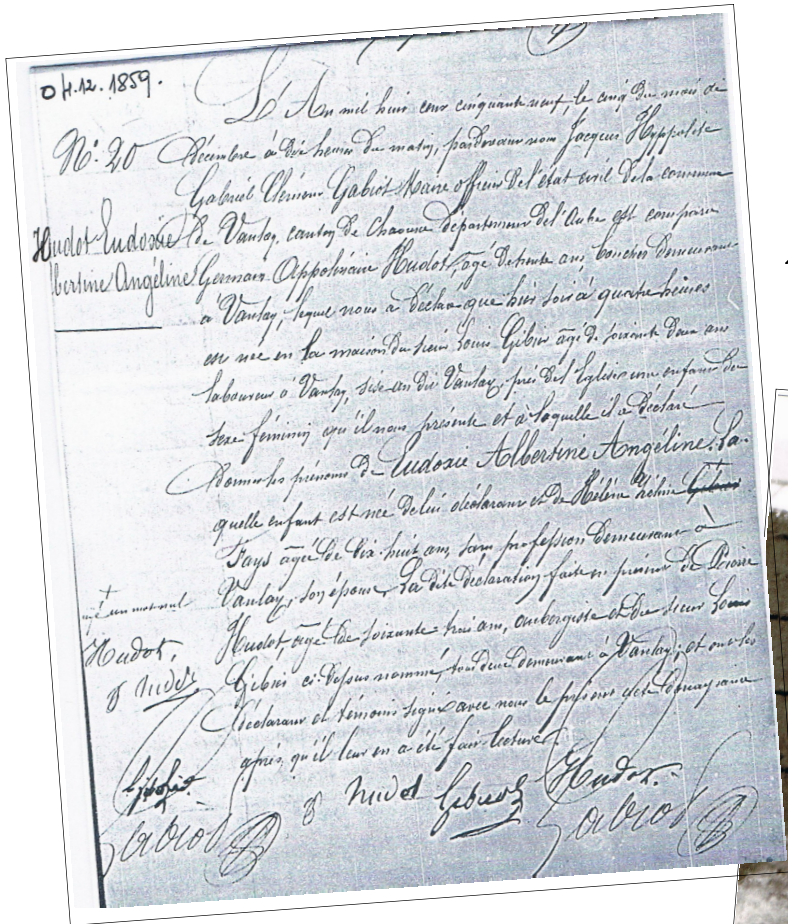 04.12.1859.
L'An mil huit cent cinquante neuf, le cinq du mois de
N°. 20
Décembre à dix heures du matin, pardevant nous Jacques Hyppolite
Gabriel Clément Gabiot Maire officier de l'état civil de la commune
Hudot Eudoxie
de Vanlay, canton de Chaource département de l'Aube est comparu
lbertine Angéline
Germain Appolinaire Hudot, agé de trente ans, boucher demeurant
à Vanlay, lequel nous a déclaré que hier soir à quatre heures
est née en la maison du sieur Louis Gibier agé de soixante deux ans
laboureur à Vanlay, sise au dit Vanlay, près de l'Eglise une enfant du
sexe féminin qu'il nous présente et à laquelle il a déclaré
donner les prénoms de Eudoxie Albertine Angéline. La-
quelle enfant est né de lui déclarant et de Hélène
Fays agée de dix-huit ans, sans profession demeurant à
Vanlay, son épouse. La dite déclaration faite en présence de
un mot nul
Hudot agé de soixante-trois ans, aubergiste et du sieur Louis
Hudot.
Gibier ci-dessus nommé, tous deux demeurant à Vanlay; et ont les
hudot
déclarant et témoins signés avec nous le présent acte de naissance
après, qu'il leur en a été fait lecture.
hudot Gibier Hudot.
Gabiot Gabiot